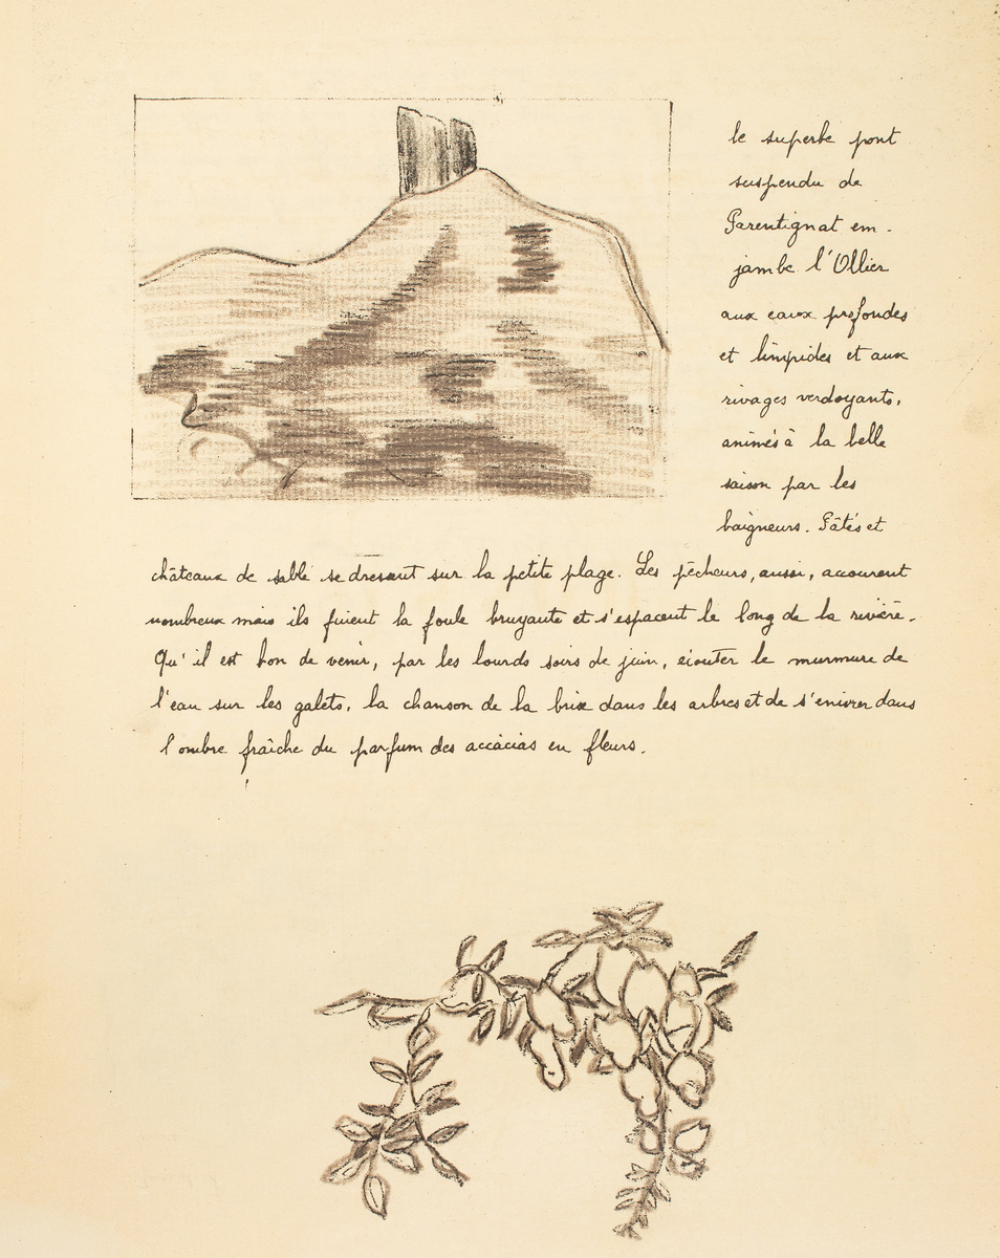 le superbe pont
suspendu de
Parentignat em-
jambe l'Ollier
aux eaux profondes
et limpides et aux
rivages verdoyants,
animés à la belle
saison par les
baigneurs. Pâtés et
châteaux de sable se dressent sur la petite plage. Les pêcheurs, aussi, accourent
nombreux mais ils fuient la foule bruyante et s'espacent le long de la rivière.
Qu'il est bon de venir, par les lourds soirs de juin, écouter le murmure de
l'eau sur les galets, la chanson de la brise dans les arbres et de s'enivrer dans
l'ombre fraîche du parfum des accàcias en fleurs.